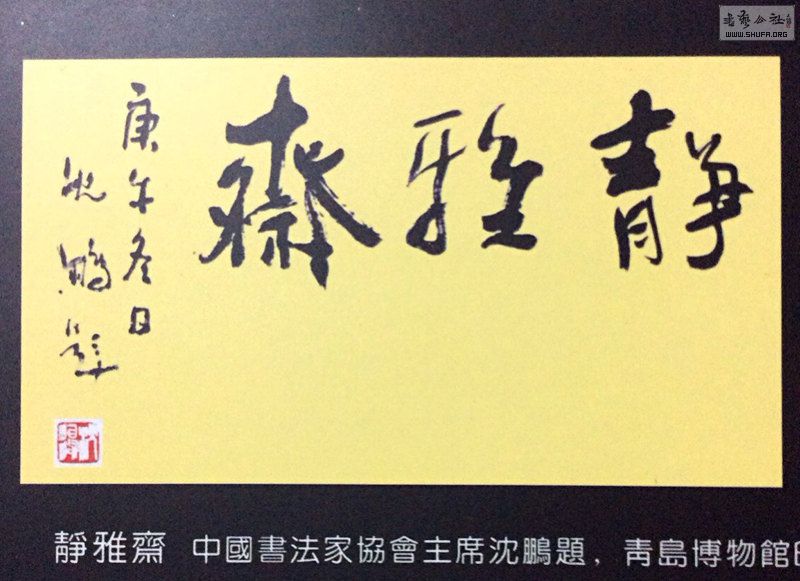 書藝公社
WWW.SHUFA.ORG
靜雅齋
庚午冬日
沈鵬題
靜雅齋 中國書法家協會主席沈鵬題，青島博物館